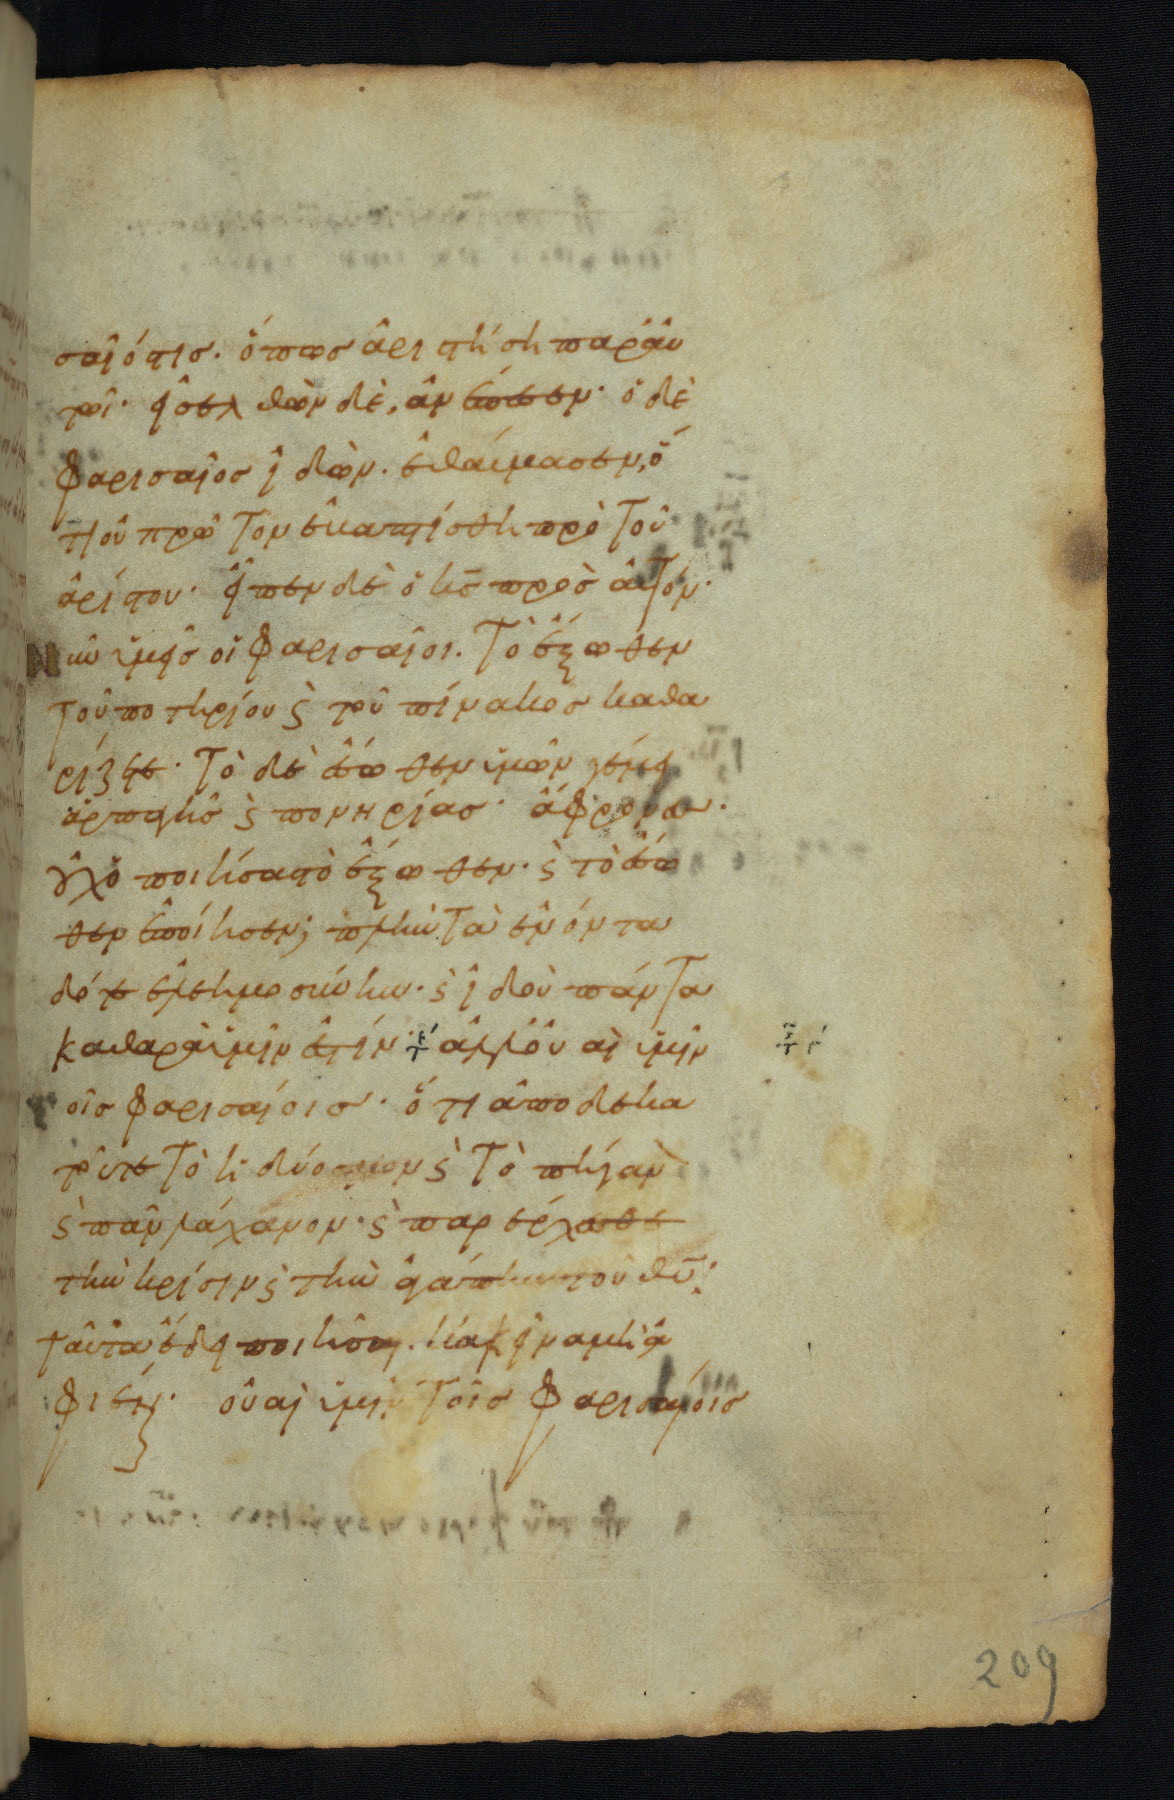 σαῖός τις· ὅπως ἀριστήση παρ' αὐ
τῶι· εἰσελθὼν δὲ, ἀνέπεσεν· ὁ δὲ
φαρισαῖος ἰδὼν· ἐθαύμασεν, ὅ
τι οὐ πρῶτον ἐβαπτίσθη πρὸ τοῦ
ἀρίστου· εἶπεν δὲ ὁ κ̅ς̅ πρὸς αὐτόν·
νῦν ὑμεῖς οἱ φαρισαῖοι. τὸ ἔξωθεν
τοῦ ποτηρίου ϛ τοῦ πίνακος καθα
ρίζετε· τὸ δὲ ἔσωθεν ὑμῶν γέμει
ἁρπαγῆς ϛ πονηρίας· ἄφρονες·
οὐχ ὁ ποιήσας τὸ ἔξωθεν· ϛ τὸ ἔσω
θεν ἐποίησεν; πλὴν τὰ ἐνόντα
δότε ἐλεημοσύνην· ϛ ἰδοὺ πάντα
καθαρὰ ὑμῖν ἐστίν· ἀλλ' οὐαὶ ὑμῖν
τοῖς φαρισαίοις· ὅτι ἀποδεκα
τοῦτε τὸ ἡδύοσμον ϛ τὸ πήγανον
ϛ πᾶν λάχανον· ϛ παρέρχεσθε
τὴν κρίσιν ϛ τὴν ἀγάπην τοῦ θ̅υ̅·
ταῦτα ἔδει ποιῆσαι· κἀκεῖνα μὴ ἀ
φιέναι· οὐαὶ ὑμῖν τοῖς φαρισαίοις
209